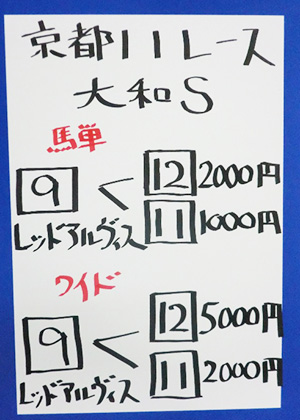 京都11レース
大和S
馬単
9 < 12 2000円
レッドアルヴィス 11 1000円
ワイド
9 < 12 5000円
レッドアルヴィス 11 2000円